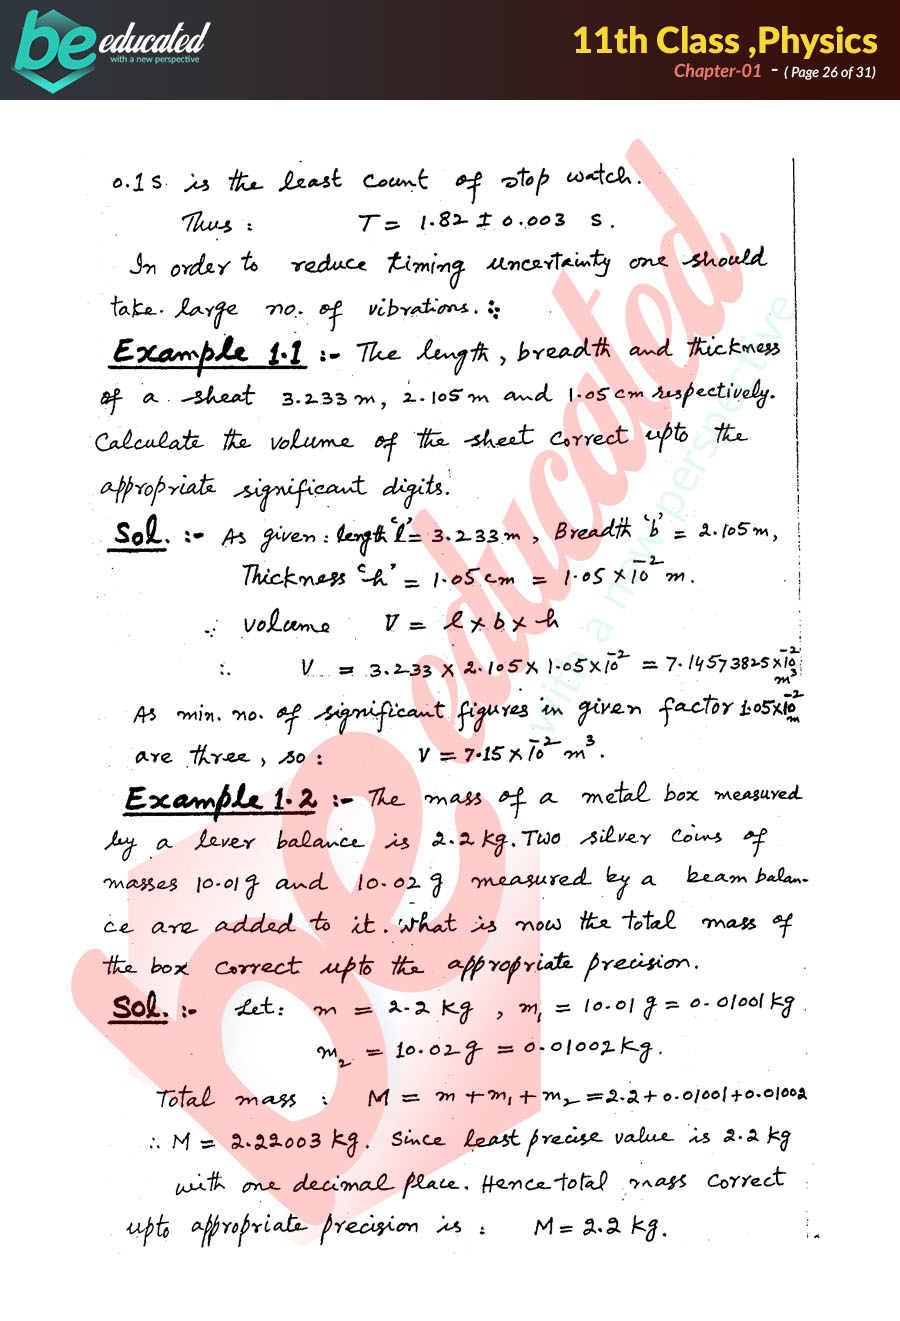 be educated
with a new perspective
11th Class ,Physics
Chapter-01 - ( Page 26 of 31)
0.1 s. is the least count of stop watch.
Thus : T = 1.82 ± 0.003 s.
In order to reduce timing uncertainty one should
take large no. of vibrations.
Example 1.1 :- The length, breadth and thickness
of a sheat 3.233 m, 2.105 m and 1.05 cm respectively.
Calculate the volume of the sheet correct upto the
appropriate significant digits.
Sol. :- As given : length 'l' = 3.233 m, Breadth 'b' = 2.105 m,
Thickness 'h' = 1.05 cm = 1.05 × 10⁻² m.
∴ volume V = l × b × h
∴ V = 3.233 × 2.105 × 1.05 × 10⁻² = 7.14573825 × 10⁻² m³
As min. no. of significant figures in given factor 1.05×10⁻² m
are three, so : V = 7.15 × 10⁻² m³.
Example 1.2 :- The mass of a metal box measured
by a lever balance is 2.2 kg. Two silver coins of
masses 10.01 g and 10.02 g measured by a beam balan-
ce are added to it. What is now the total mass of
the box correct upto the appropriate precision.
Sol. :- Let : m = 2.2 kg , m₁ = 10.01 g = 0.01001 kg
m₂ = 10.02 g = 0.01002 kg.
Total mass : M = m + m₁ + m₂ = 2.2 + 0.01001 + 0.01002
∴ M = 2.22003 kg. Since least precise value is 2.2 kg
with one decimal place. Hence total mass correct
upto appropriate precision is : M = 2.2 kg.
be educated
with a new perspective